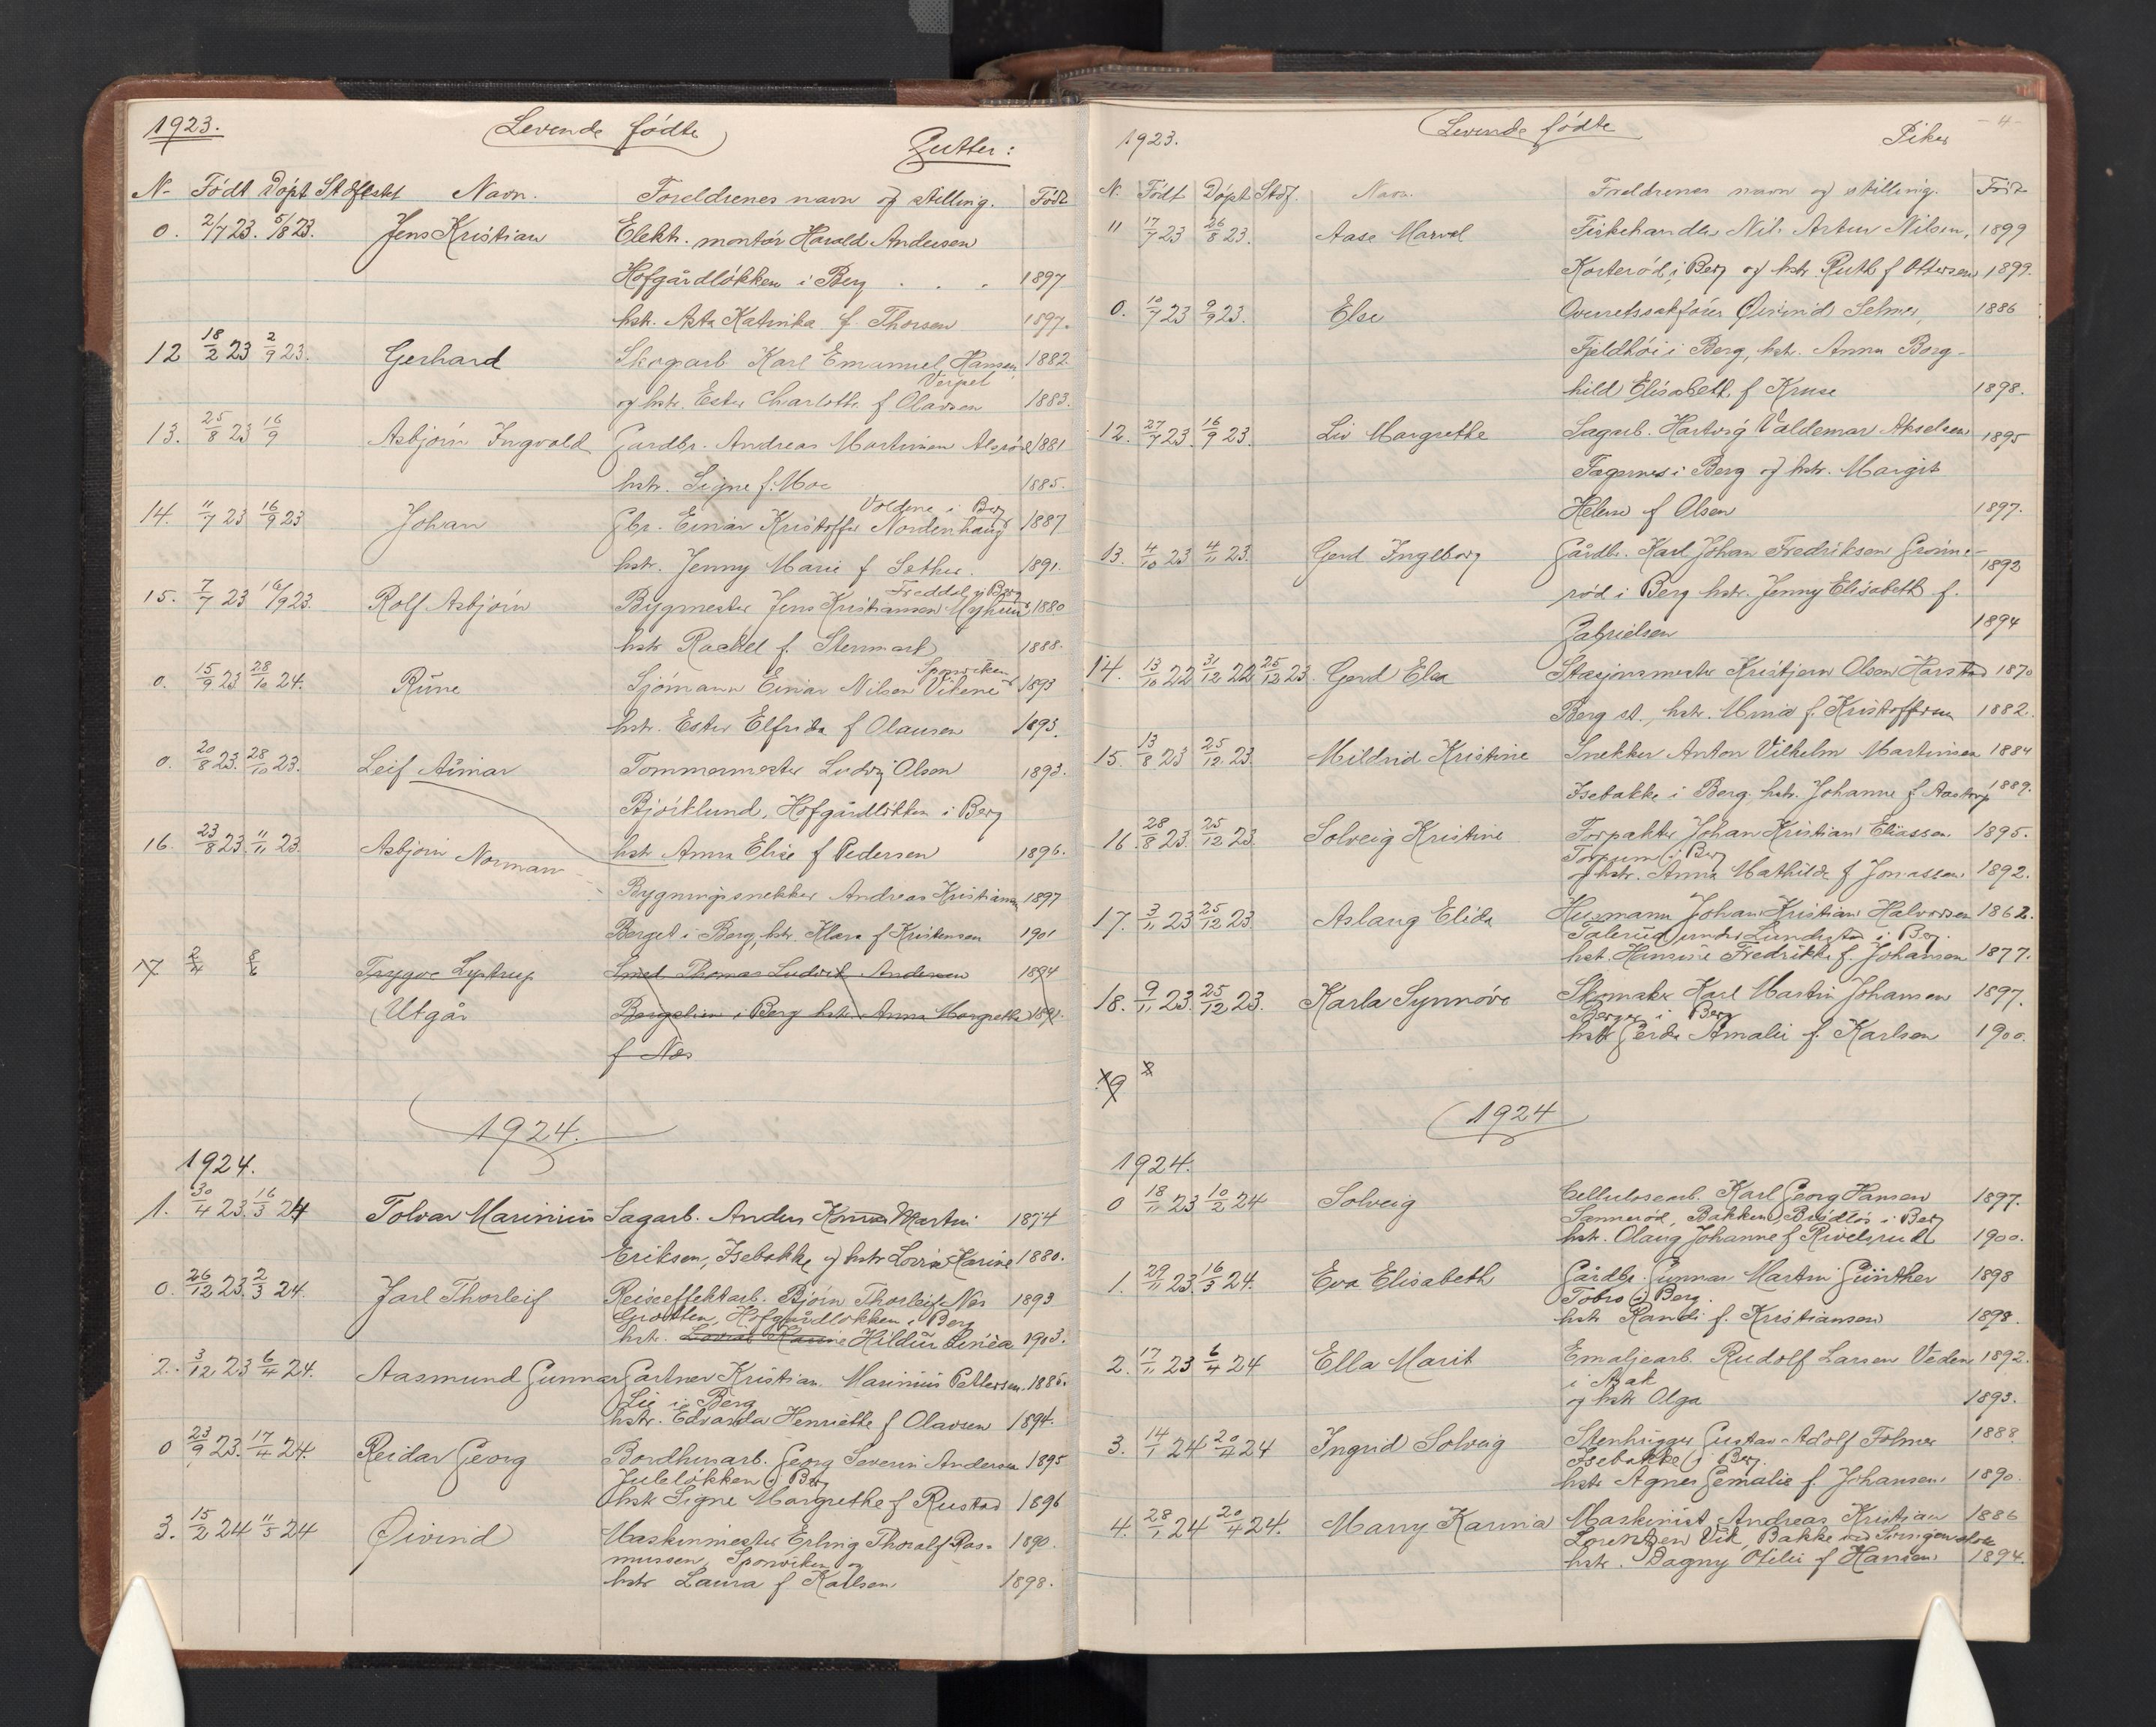 1923. Levende fødte Gutter:
N- Født Døpt Stadfestet Navn. Foreldrenes navn og stilling. Født
0. 2/7 23. 5/8 23. Jens Kristian Elektr. montør Harald Andersen
Hofgårdløkken i Berg . . . 1897
hstr. Asta Katinka f. Thorsen 1897.
12 18/2 23 2/9 23. Gerhard Skogarb Karl Emanuel Hansen 1882.
Verpet
og hstr. Ester Charlotte f Olavsen 1883.
13. 25/8 23 16/9 Asbjørn Ingvald Gardbr. Andreas Martinsen 1881
hstr. Signe f. Moe 1885.
Voldene i Berg
14. 11/7 23 16/9 23 Johan Gbr. Einar Kristoffer Nordenhaug 1887
hstr. Jenny Marie f Sether. 1891.
i Berg
15. 7/7 23 16/9 23. Rolf Asbjørn Bygmester Jens Kristiansen Myhren 1880
hstr Rachel f. Stenmark 1888.
Sponviken
0. 15/9 23 28/10 24. Rune Sjømann Einar Nilsen Vikene 1893
hstr. Ester Elfrida f Olausen 1893.
0. 20/8 23. 28/10 23. Leif Aimar Tømmermester Ludvig Olsen 1893.
Bjørklund, Hofgårdløkken i Berg
16. 23/8 23. 11/11 23. Asbjørn Norman hstr Anna Elise f Pedersen 1896.
Bygningssnekker Andreas Kristiansen 1897
Berget i Berg, hstr. Klara f Kristensen 1901
17 2/4 8/6 Trygve Lystrup Smed Thomas Ludvik Andersen 1894
Utgår i Berg hstr. Anna Margrethe 1891.
f Næs
1924.
1924.
1. 30/4 23. 16/3 24 Tolvar Marinius Sagarb. Anders Martin 1874
Eriksen, Isebakke og hstr Lovisa Karine 1880.
0. 26/12 23. 2/3 24. Jarl Thorleif Reiseeffektarb. Bjørn Thorleif Næs 1893
Grotten, Hofgårdløkken i Berg
hstr. Lovise Karine Hildur Linéa 1903.
2. 3/12 23 6/4 24. Aasmund Gunnar Gartner Kristian Marinius Pettersen 1885.
Lie i Berg
hstr. Edvarda Henriette f Olavsen 1894.
0 23/9 23. 17/4 24. Reidar Georg Bordhusarb. Georg Severin Andersen 1895
Juleløkken i Berg
hstr Signe Margrethe f Rustad 1896
3. 15/2 24 11/5 24 Øivind Maskinmester Erling Thoralf Ras- 1890.
mussen, Sponviken og
hstr Laura f Karlsen 1898.
- 4 -
1923. Levende fødte Piker
N. Født Døpt Stdf. Navn. Foreldrenes navn og stilling. Født
11 17/7 23 26/8 23. Aase Marvel Fiskehandler Nils Artur Nilsen, 1899
Korterød i Berg og hstr. Ruth f Ottersen 1899.
0. 10/7 23 9/9 23. Else Overretssakfører Øivind Selmer, 1886
Fjeldhøi i Berg, hstr. Anna Borg-
hild Elisabeth f Kruse 1898.
12. 27/7 23. 16/9 23. Liv Margrethe Sagarb. Hartvig Valdemar Akselsen 1895
Fagernes i Berg og hstr. Margit
Helene f Olsen 1897.
13. 4/10 23 4/11 23. Gerd Ingeborg Gårdbr. Karl Johan Fredriksen Grønne- 1892
rød i Berg hstr. Jenny Elisabeth f.
Gabrielsen 1894
14. 13/10 22 31/12 22 25/12 23. Gerd Elsa Stasjonsmester Kristjern Olsen Harstad 1870
Berg st., hstr. Mina f. Kristoffersen 1882.
15. 13/8 23 25/12 23. Mildrid Kristine Snekker Anton Vilhelm Martinsen 1884
Isebakke i Berg hstr. Johanne f Aastorp 1889.
16. 28/8 23. 25/12 23. Solveig Kristine Forpakter Johan Kristian Eliassen 1895.
Torpum i Berg
og hstr. Anna Mathilde f Jonassen 1892.
17. 3/11 23 25/12 23 Aslaug Elida Husmann Johan Kristian Halvorsen 1862.
Talerud under Lundestad i Berg.
hst. Hansine Fredrikke f. Johansen 1877.
18. 9/11 23. 25/12 23. Karla Synnøve Skomaker Karl Martin Johansen 1897.
Berger i Berg
hstr Gerda Amalie f. Karlsen 1900.
19
1924
1924.
0 18/11 23 10/2 24 Solveig Cellulosearb. Karl Georg Hansen 1897.
Sannerød, Bakken, Brødløs i Berg
hstr. Olaug Johanne f Rivelsrud 1900.
1. 29/11 23. 16/3 24. Eva Elisabeth Gårdbr. Gunnar Martin Günther 1898
Tobro i Berg.
hstr Randi f. Kristiansen 1898.
2. 17/11 23 6/4 24 Ella Marit Emaljearb. Rudolf Larsen Veden 1892.
i Bak
og hstr Olga 1893.
3. 14/1 24 20/4 24 Ingrid Solveig Stenhugger Gustav Adolf Folmer 1888.
Isebakke i Berg.
hstr Agnes Gemalie f. Johansen 1890.
4. 28/1 24 20/4 24. Marry Karina Maskinist Andreas Kristjan 1886
Lorentzen Vik, Bakke
hstr. Dagny Otilie f Hansen 1894.